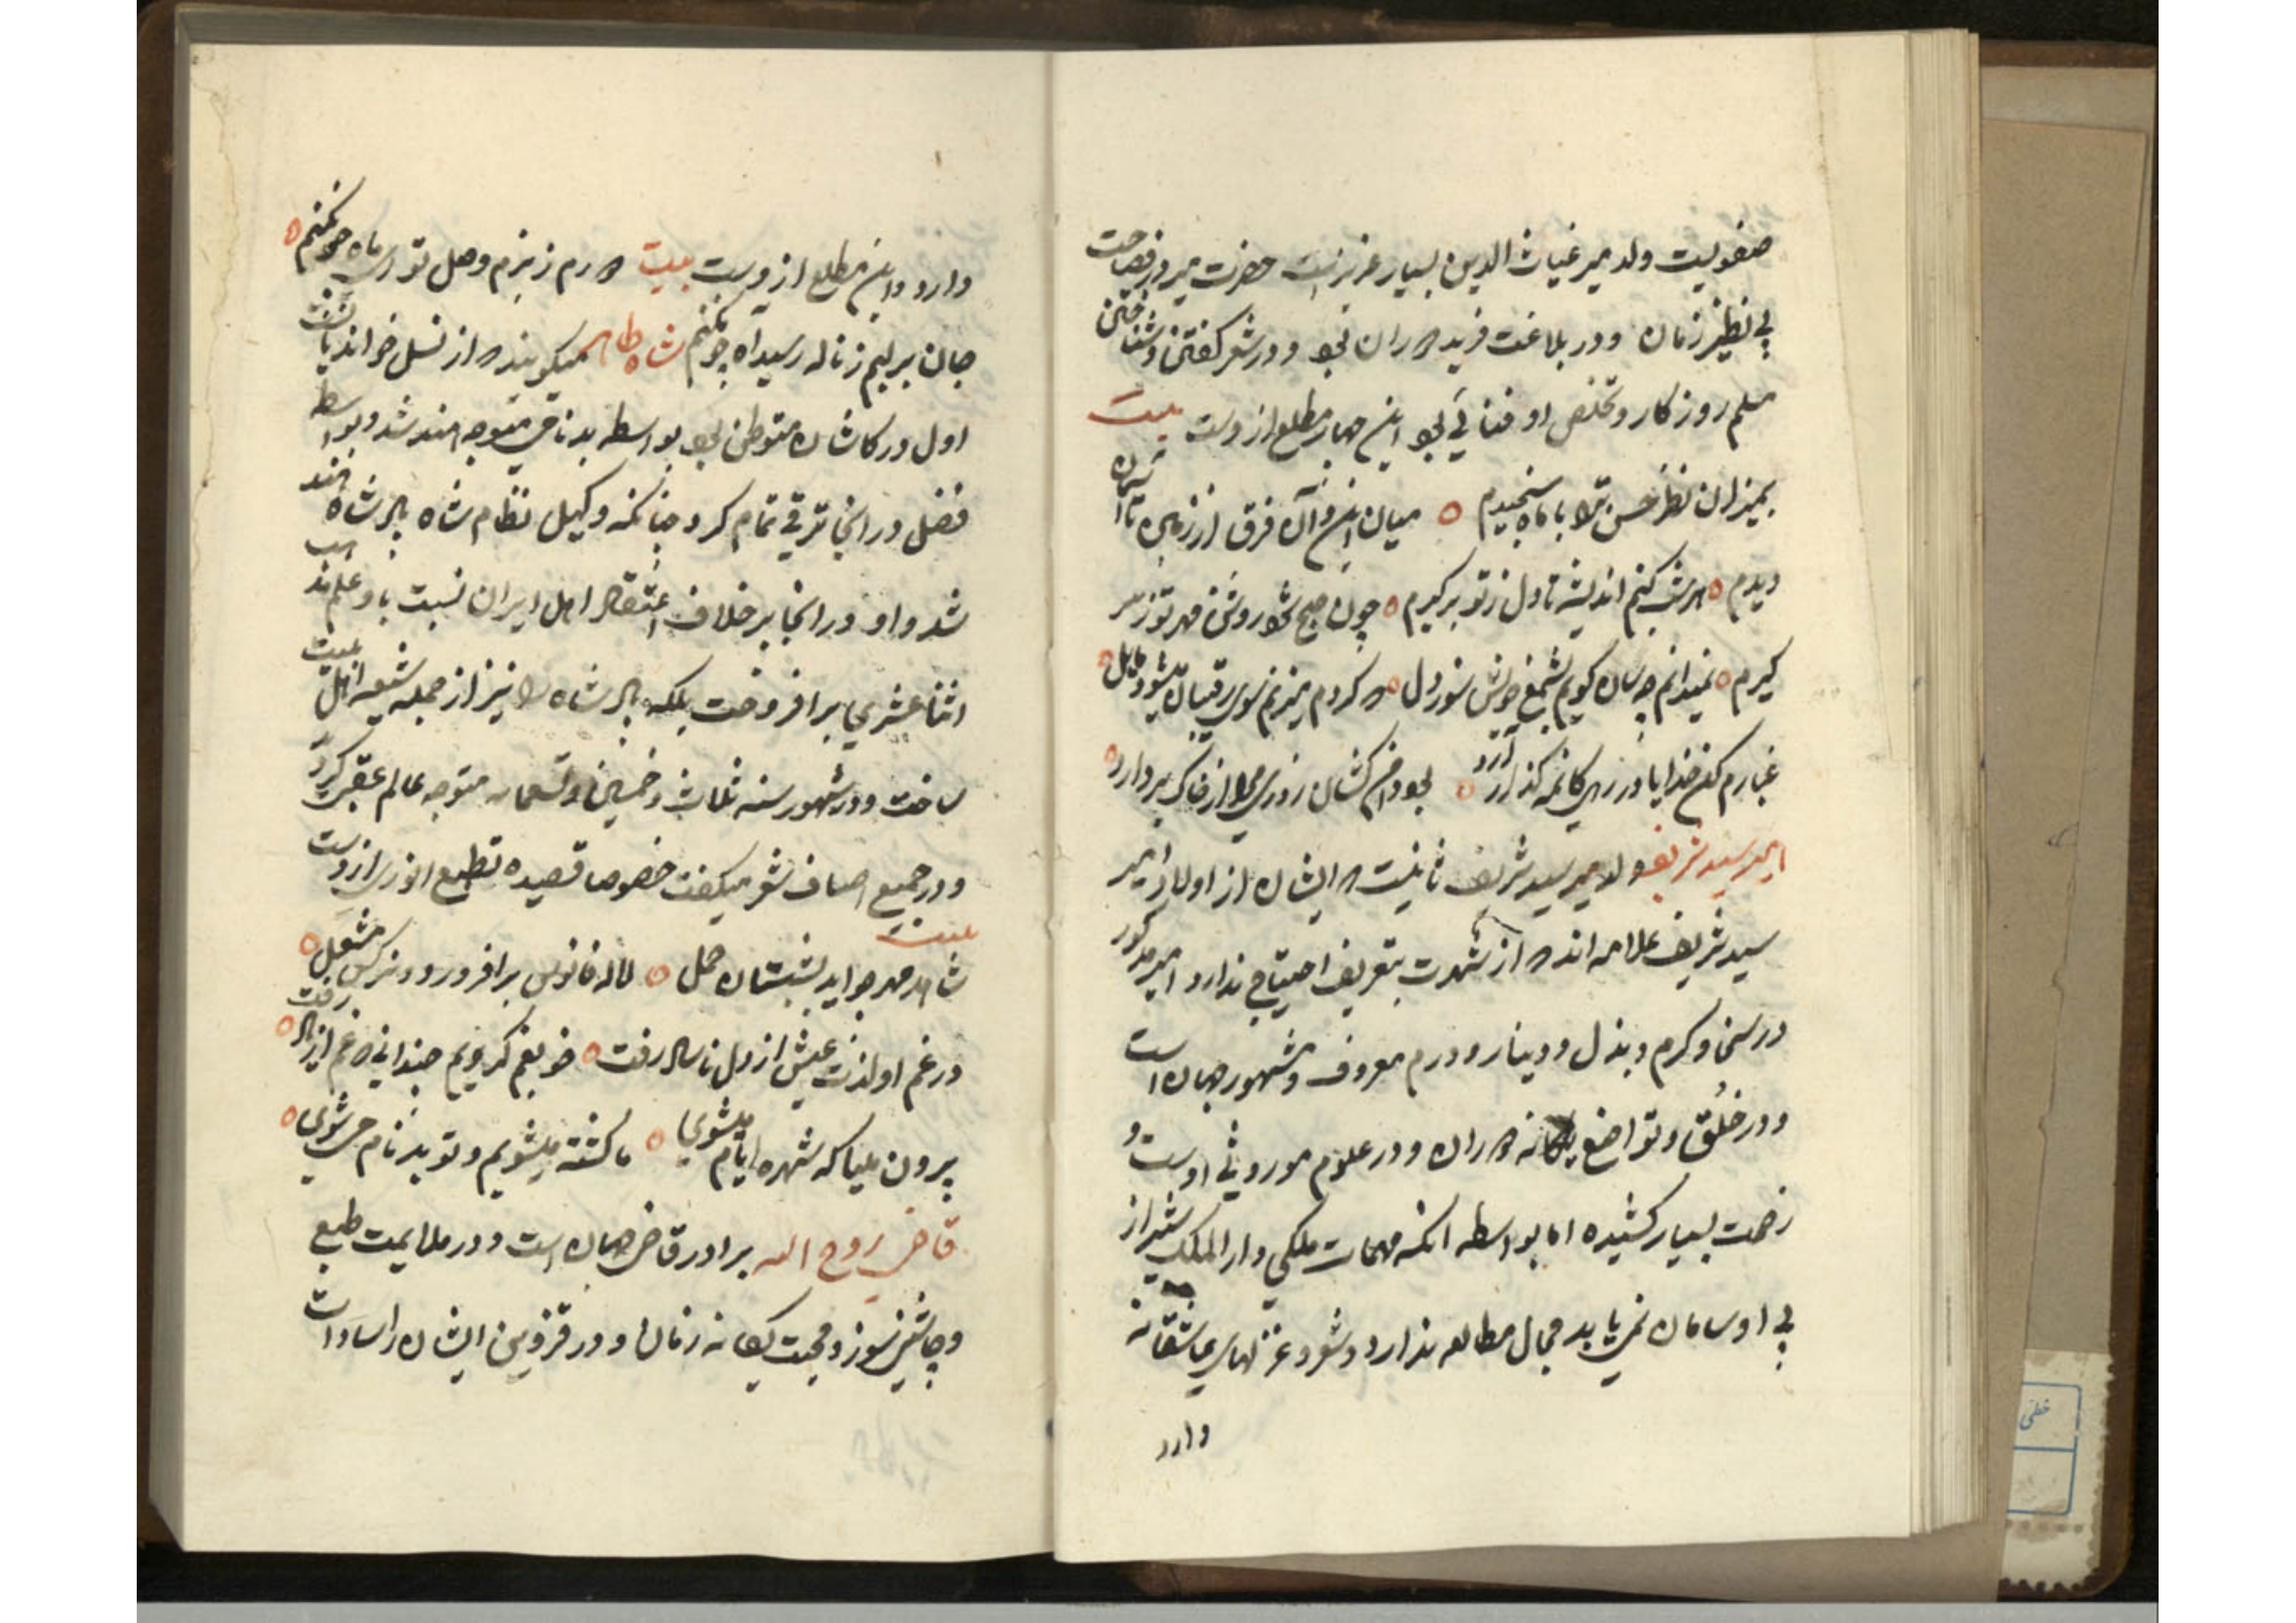 صفویست ولد میر غیاث الدین بسیار عزیز است حضرت میر در فصاحت
بی نظیر زمان و در بلاغت فرید دوران بود و در شعر گفتن و شناختن
مسلم روزگار و تخلص او فنائی بود این چهار مطلع از وست بیت
بمیزان نظر حسن ترا با ماه سنجیدم میان این و آن فرق از زمین تا آسمان
دیدم هر شب کنم اندیشه تا دل ز تو برگیرم چون صبح شود روشن مهر تو ز سر
گیرم نمیدانم چسان گویم بشمع خویش سوز دل که کر دم میزنم سوی رقیبان میشود مایل
غبارم کن خدایا در رهی کانمه گذار آرد بود دامن کشان روزی مرا از خاک بردارد
امیر سید شریف ولد میر سید شریف ثانیست که ایشان از اولاد امیر
سید شریف علامه اند که از شهرت بتعریف احتیاجی ندارد امیر مذکور
در سخا و کرم و بذل و دینار و درم معروف و مشهور جهان است
و در خلق و تواضع یگانه دوران و در علوم موروثی اوست و
زحمت بسیار کشیده اما بواسطه انکه مهمات ملکی دار الملک شیراز
بی او سامان نمی یابد مجال مطالعه ندارد و شعر و غزلهای عاشقانه
دارد
دارد و این مطلع از وست بیت دورم ز بزم وصل تو ای ماه چون کنم
جان بر لبم ز ناله رسید آه چون کنم شاه طاهر میگویند که از نسل خواندیانست
اول در کاشان متوطن بود بواسطه بدنامی متوجه هند شد و بواسطه
فضل در انجا ترقی تمام کرد چنانکه وکیل نظام شاه پادشاه هند
شد و او در انجا بر خلاف اعتقاد اهل ایران نسبت باو علم مذهب
اثنا عشری بر افروخت بلکه پادشاه را نیز از جمله شیعه اهل بیت
ساخت و در شهور سنه ثلاث و خمسین و تسعمایه متوجه عالم عقبی کردید
و در جمیع اصناف شعر میگفت خصوصا قصیده تطبع انوری از وست
بیت
شاهد مهر چو آید بشبستان حمل لاله فانوس بر افروزد و نرکس مشعل
در غم او لذت عیش از دل ناشاد رفت خو بغم کردیم چندانی که غم از یاد رفت
بیرون میا که شهره ایام میشوی ما کشته میشویم و تو بدنام می شوی
قاضی روح الله برادر قاضی جهان است و در ملایمت طبع
و چاشنی سوز و محبت یگانه زمان و در قزوین ایشان را سادات
خطی